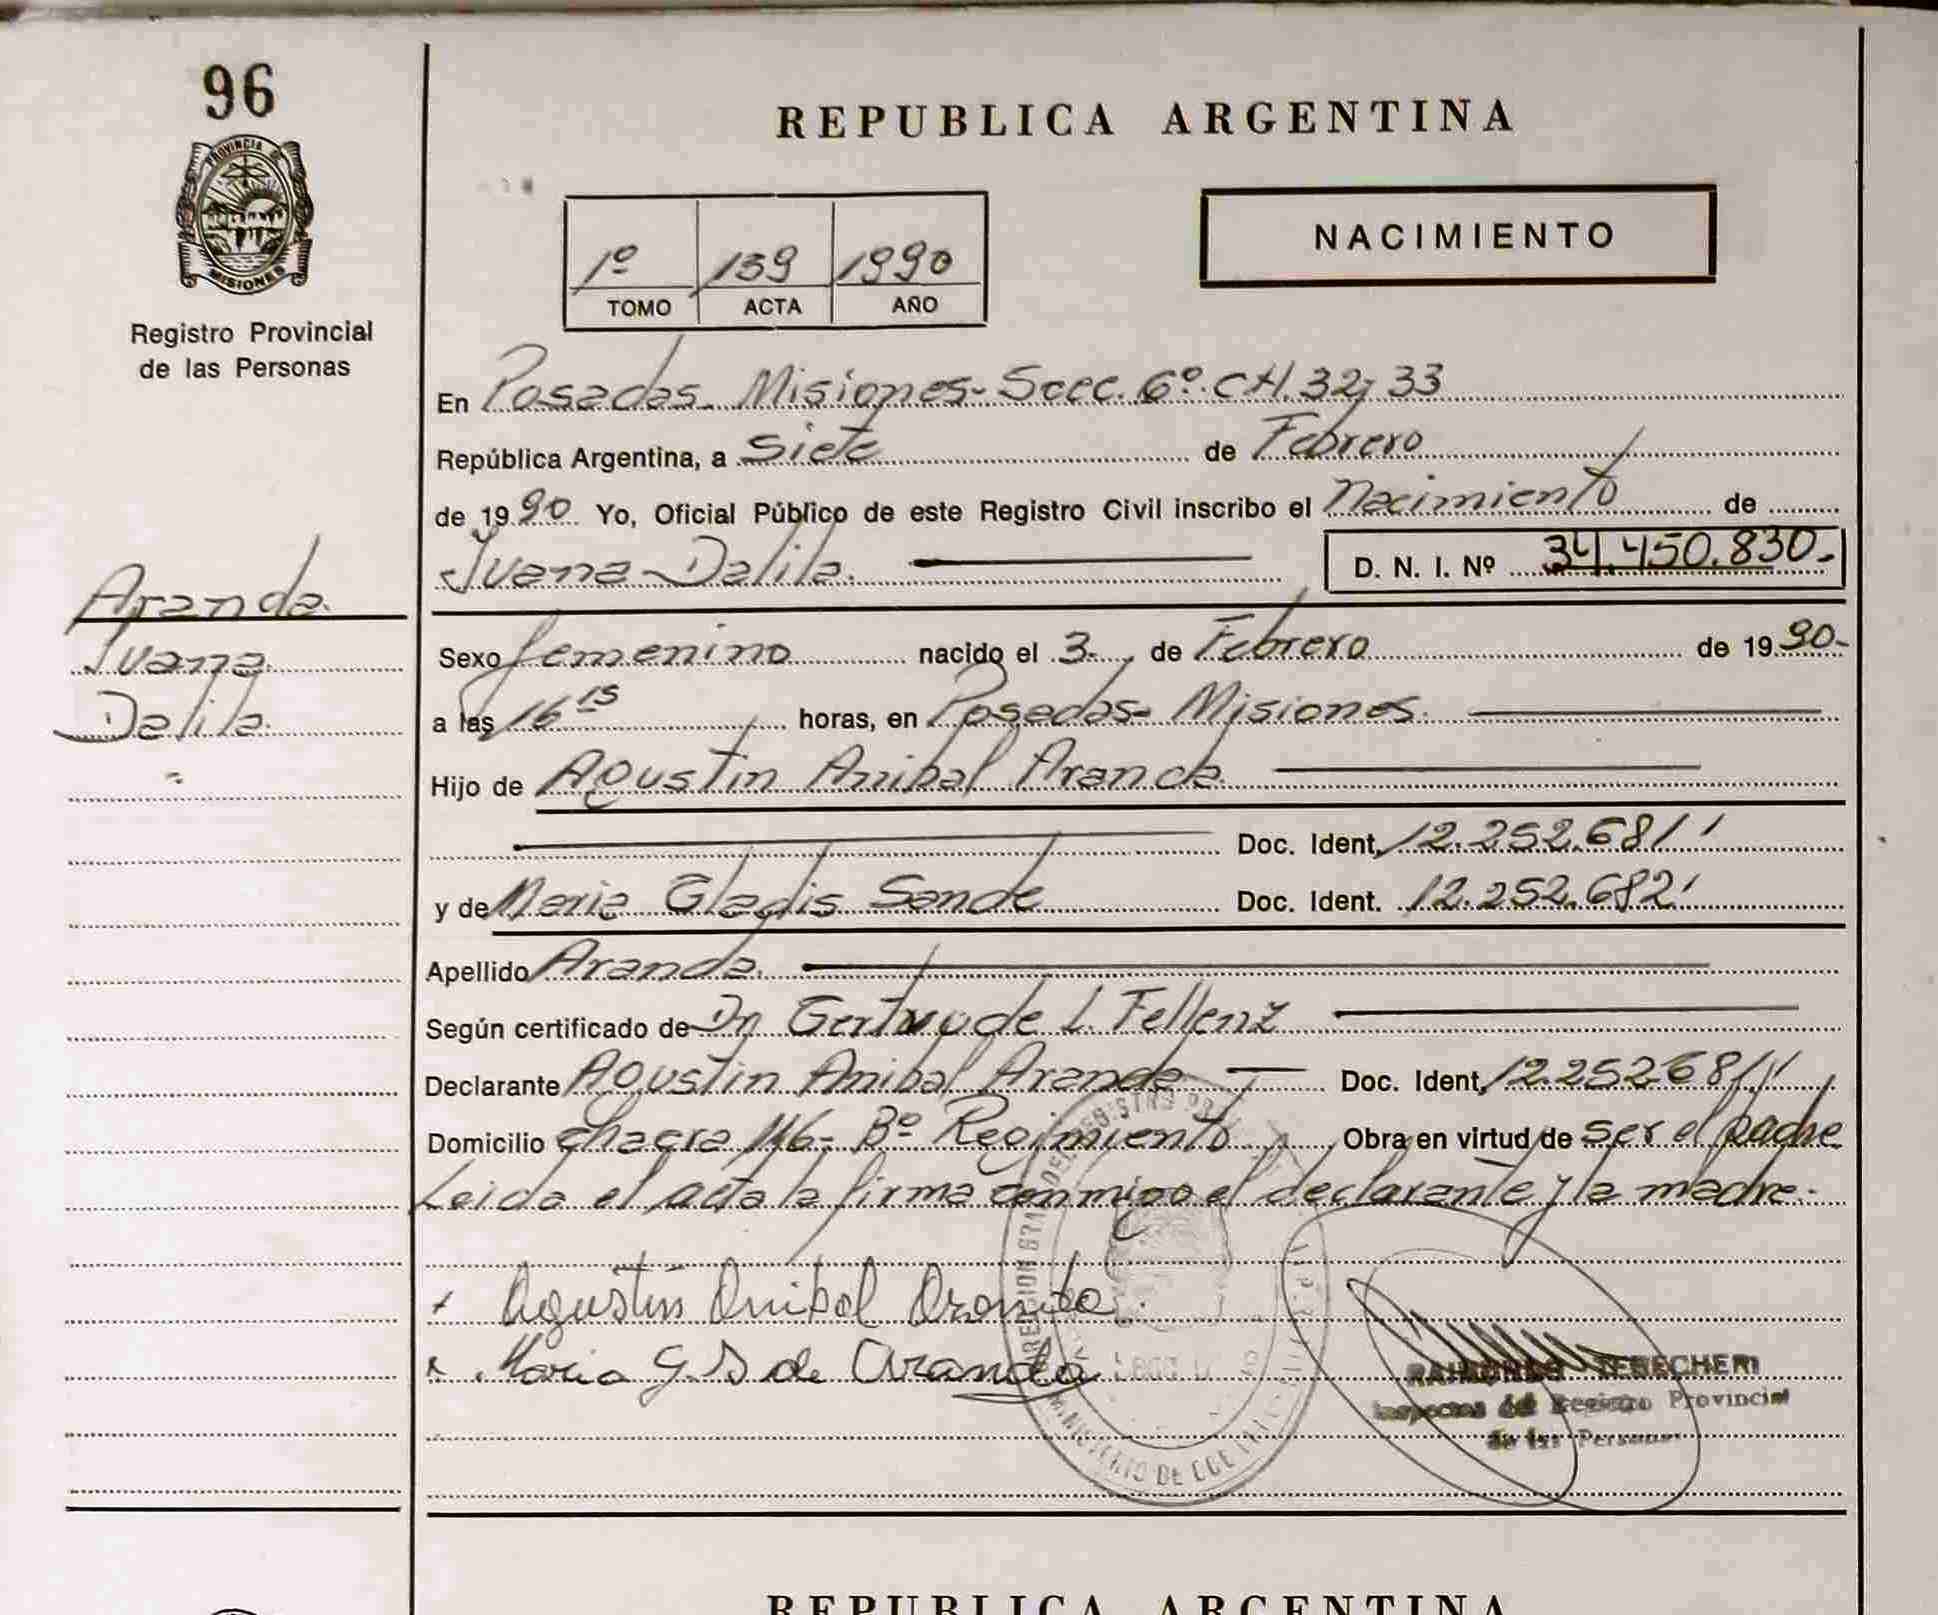 96
PROVINCIA DE
MISIONES
Registro Provincial
de las Personas
REPUBLICA ARGENTINA
NACIMIENTO
1º 139 1990
TOMO ACTA AÑO
En Posadas Misiones- Secc. 6º. CH. 32 y 33
República Argentina, a Siete de Febrero
de 1990 Yo, Oficial Público de este Registro Civil inscribo el Nacimiento de
Juana Dalila. D. N. I. Nº 34.450.830.-
Aranda.
Juana
Dalila.
Sexo femenino nacido el 3. de Febrero de 1990-
a las 16 15 horas, en Posadas- Misiones.
Hijo de Agustin Anibal Aranda.
Doc. Ident. 12.252.681
y de Maria Gladis Sande Doc. Ident. 12.252.682
Apellido Aranda.
Según certificado de Dn Gertrude L. Fellenz
Declarante Agustin Anibal Aranda Doc. Ident. 12.252681
Domicilio chacra 146- Bº Regimiento Obra en virtud de ser el padre
Leida el acta la firma conmigo el declarante y la madre.
Agustin Anibal Aranda.
Maria G. S de Aranda
MINISTERIO DE
Inspector del Registro Provincial
de las Personas
REPUBLICA ARGENTINA